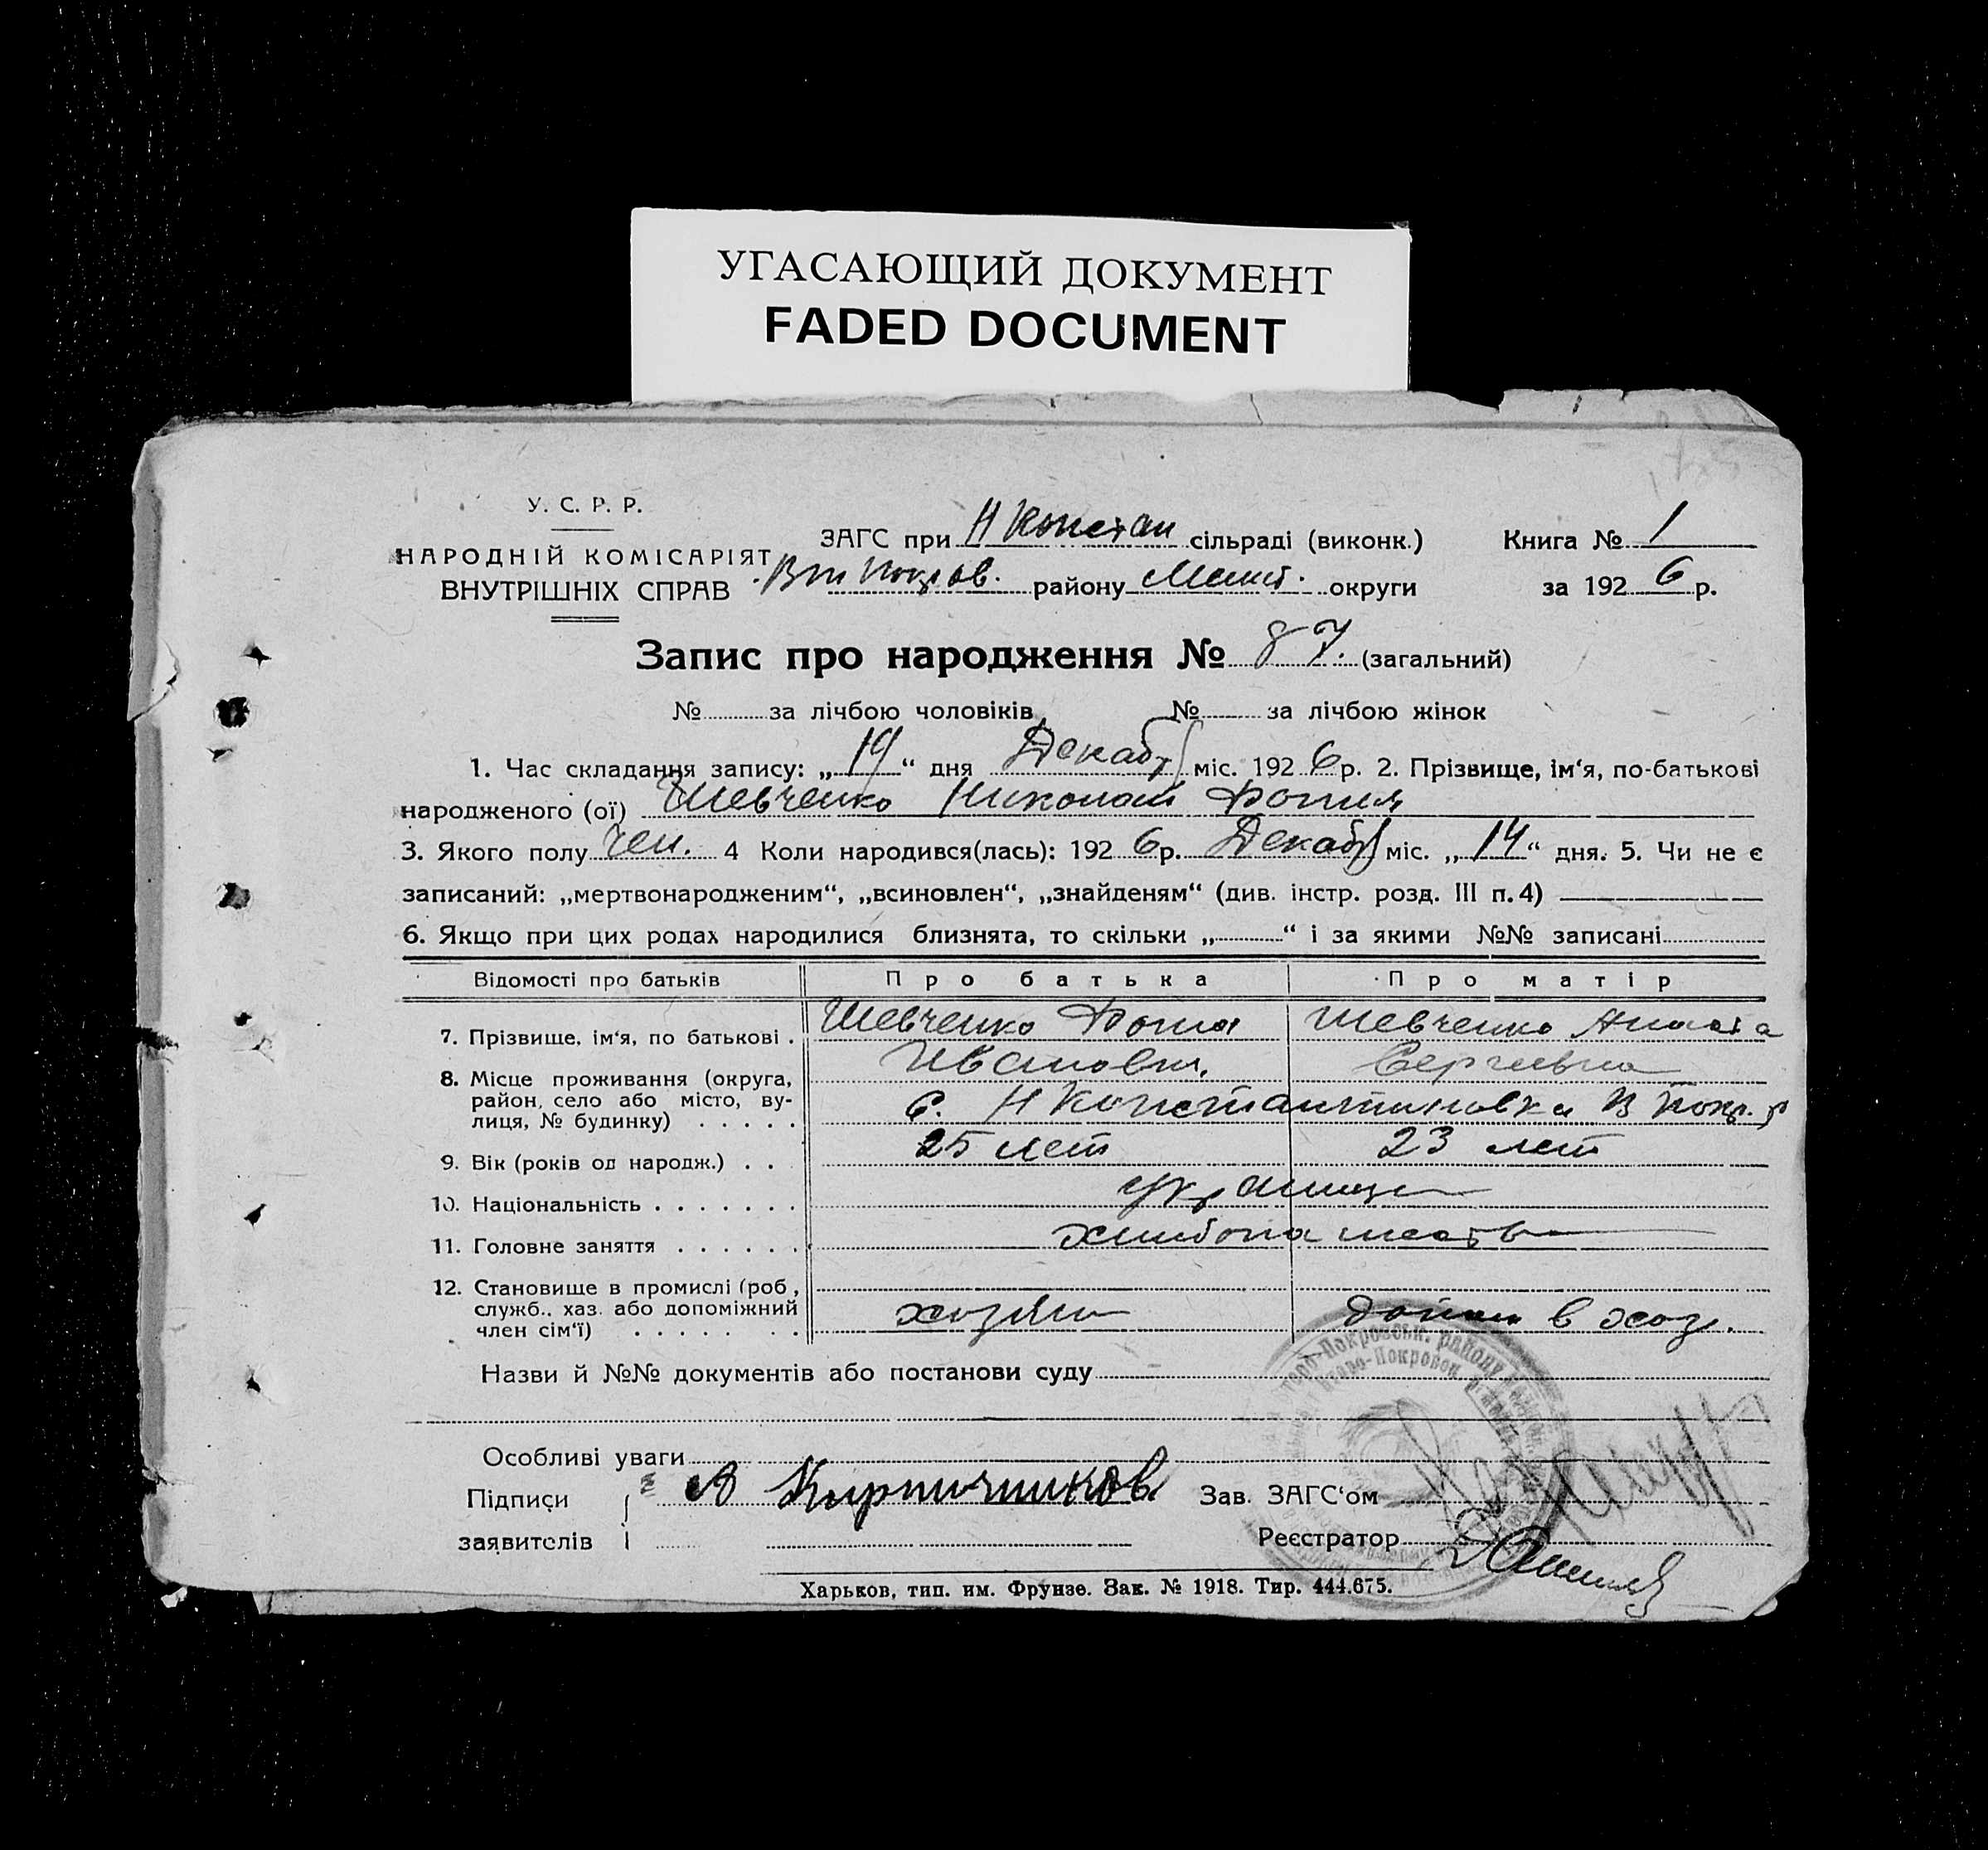 УГАСАЮЩИЙ ДОКУМЕНТ
FADED DOCUMENT
У. С. Р. Р.
НАРОДНІЙ КОМІСАРІЯТ
ВНУТРІШНІХ СПРАВ
ЗАГС при Н Констан сільраді (виконк.)
району округи
Книга № 1
за 192 6 р.
Запис про народження № 87. (загальний)
№ за лічбою чоловіків № за лічбою жінок
1. Час складання запису: „19“ дня Декабр міс. 192 6 р. 2. Прізвище, ім‘я, по-батькові
народженого (ої) Шевченко Николай Фотия
3. Якого полу чол. 4 Коли народився(лась): 192 6 р. Декабр міс. „14“ дня. 5. Чи не є
записаний: „мертвонародженим“, „всиновлен“, „знайденям“ (див. інстр. розд. III п. 4)
6. Якщо при цих родах народилися близнята, то скільки „ “ і за якими №№ записані
Відомості про батьків Про батька Про матір
7. Прізвище, ім‘я, по батькові . Шевченко Фотия Шевченко
Иванович. Сергиевна
8. Місце проживання (округа,
район, село або місто, ву-
лиця, № будинку) . . . . . с. Н Константиновка В Покр. р
9. Вік (років од народж.) . . 25 лет 23 лет
10. Національність . . . . . . . украинцы
11. Головне заняття . . . . . . хлибопашество
12. Становище в промислі (роб,
служб., хаз. або допоміжний
член сім‘ї) . . . . . . . хозяин в хоз.
Назви й №№ документів або постанови суду
Особливі уваги
Підписи
заявителів
А Кирпичников
Зав. ЗАГС‘ом
Реєстратор
Харьков, тип. им. Фрунзе. Зак. № 1918. Тир. 444.675.